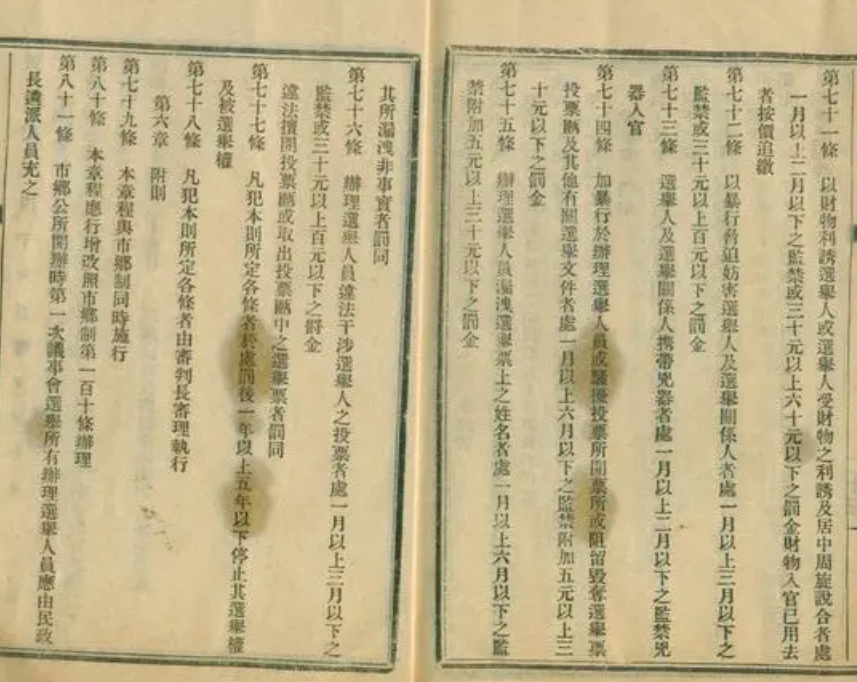 第七十一條　以財物利誘選舉人或選舉人受財物之利誘及居中周旋說合者處
一月以上二月以下之監禁或三十元以上六十元以下之罰金財物入官已用去
者按價追繳
第七十二條　以暴行脅迫妨害選舉人及選舉關係人者處一月以上三月以下之
監禁或三十元以上百元以下之罰金
第七十三條　選舉人及選舉關係人携帶兇器者處一月以上二月以下之監禁兇
器入官
第七十四條　加暴行於辦理選舉人員或騷擾投票所開票所或阻留毀奪選舉票
投票匭及其他有關選舉文件者處一月以上六月以下之監禁附加五元以上三
十元以下之罰金
第七十五條　辦理選舉人員漏洩選舉票上之姓名者處一月以上六月以下之監
禁附加五元以上三十元以下之罰金
其所漏洩非事實者罰同
第七十六條　辦理選舉人員違法干涉選舉人之投票者處一月以上三月以下之
監禁或三十元以上百元以下之罰金
違法擅開投票匭或取出投票匭中之選舉票者罰同
第七十七條　凡犯本則所定各條者於處罰後一年以上五年以下停止其選舉權
及被選舉權
第七十八條　凡犯本則所定各條者由審判長審理執行
第六章　附則
第七十九條　本章程與市鄉制同時施行
第八十條　本章程應行增改照市鄉制第一百十條辦理
第八十一條　市鄉公所開辦時第一次議事會選舉所有辦理選舉人員應由民政
長遴派人員充之